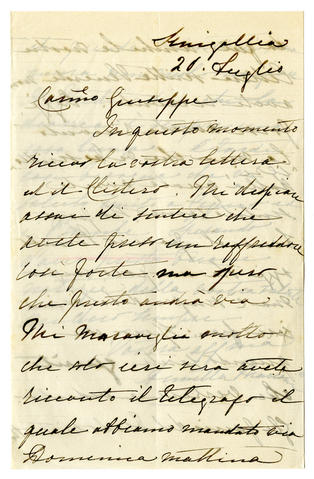 Sinigallia
20. Luglio
Carmo Giuseppe
In questo momento
ricevo la vostra lettera
ed il . Mi dispiace
assai di sentire che
avete preso un raffreddore
così forte ma spero
che presto andrà via
Mi maraviglia molto
che solo ieri sera avete
ricevuto il telegrafo il
quale abbiamo mandato via
Domenica mattina